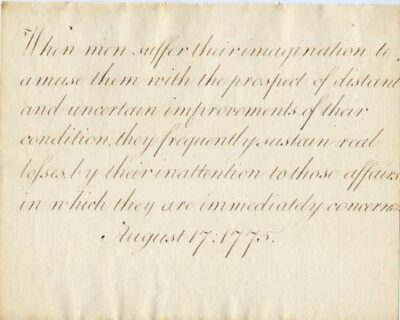 When men suffer their imagination to
amuse them with the prospect of distant
and uncertain improvements of their
condition, they frequently sustain real
losses, by their inattention to those affairs
in which they are immediately concerne
August 17: 1775.